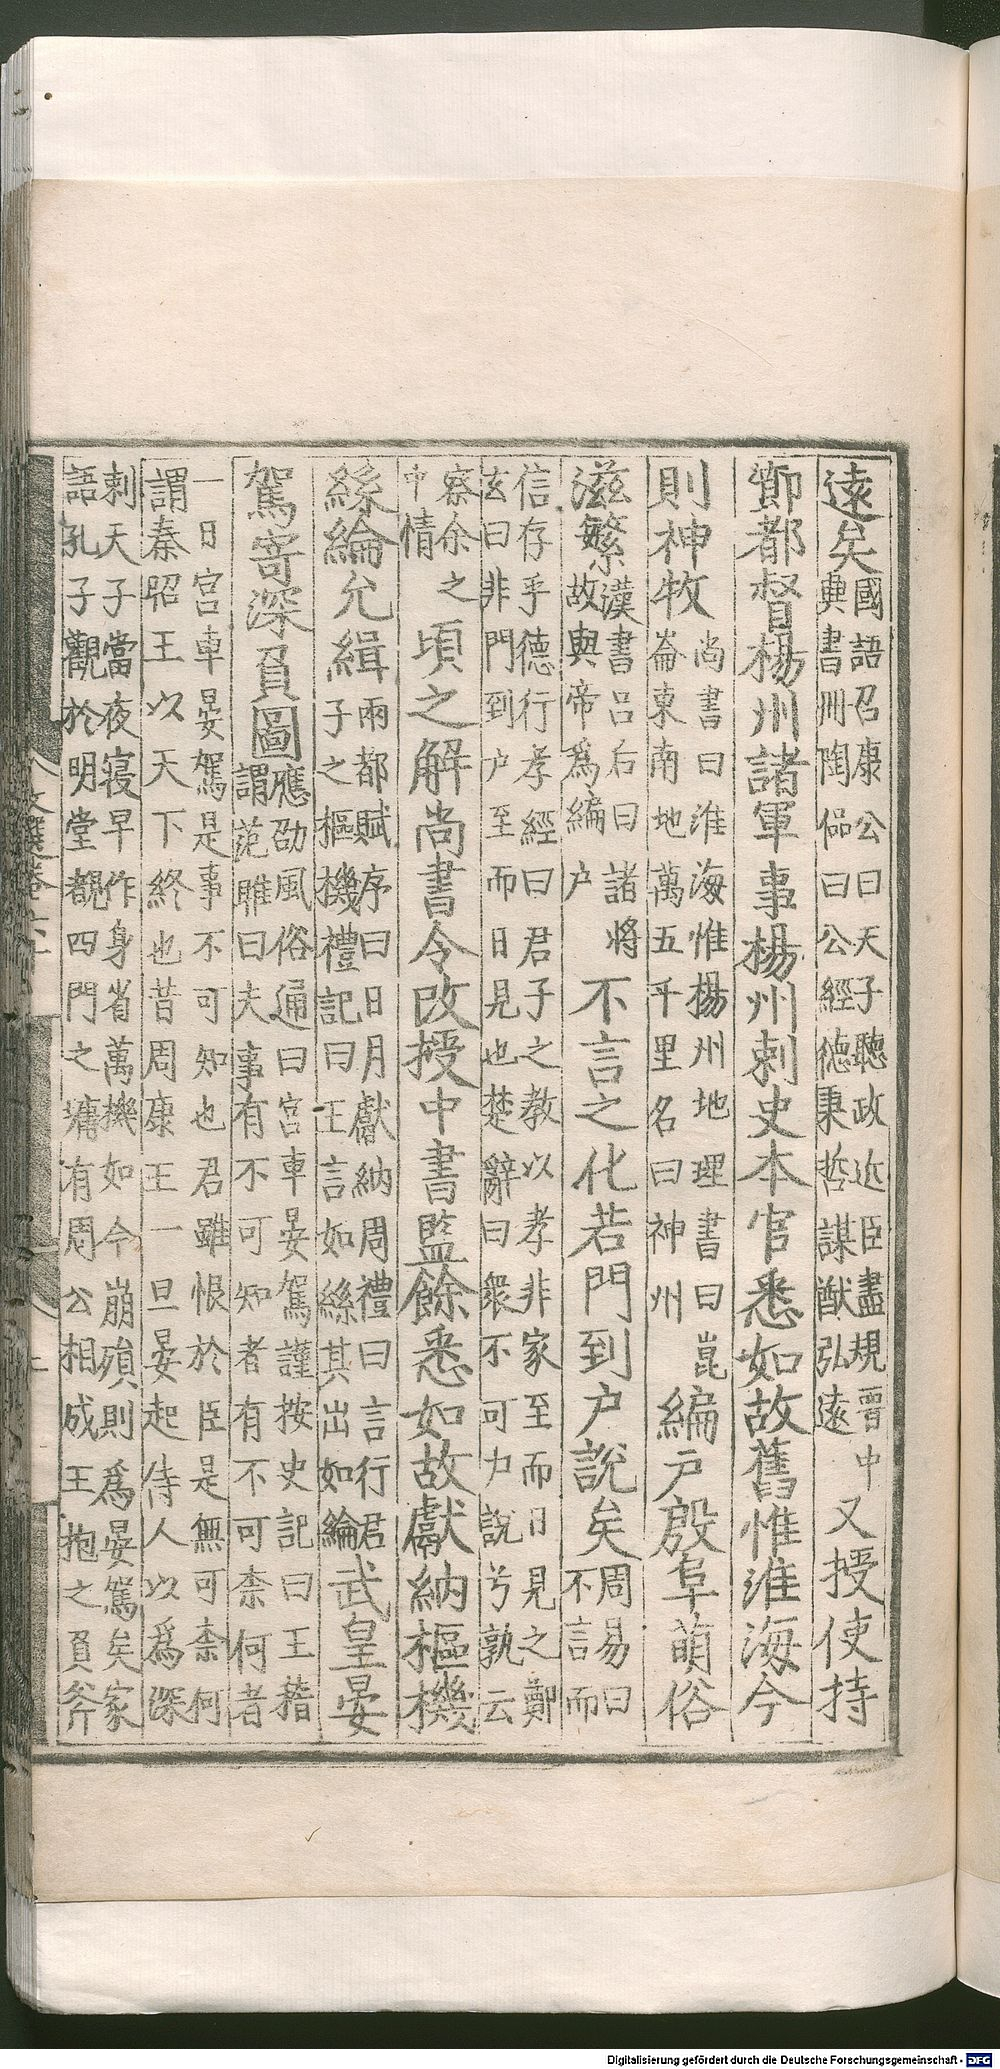 遠矣國語召康公曰天子聽政近臣盡規晉中興書州陶侃曰公經德秉哲謀猷弘遠又授使持
節都督楊州諸軍事楊州刺史本官悉如故舊惟淮海今
則神牧尚書曰淮海惟楊州地理書曰崑崙東南地萬五千里名曰神州編戶殷阜萌俗
滋繁漢書呂后曰諸將故與帝爲編户不言之化若門到户說矣周易曰不言而
信存乎德行孝經曰君子之教以孝非家至而日見之鄭玄曰非門到户至而日見也楚辭曰衆不可力說兮孰云
察余之中情頃之解尚書令改授中書監餘悉如故獻納樞機
絲綸允緝兩都賦序曰日月獻納周禮曰言行君子之樞機禮記曰王言如絲其出如綸武皇晏
駕寄深負圖應劭風俗通曰宮車晏駕謹按史記曰王稽謂范雎曰夫事有不可知者有不可柰何者
一日宮車晏駕是事不可知也君雖恨於臣是無可柰何謂秦昭王以天下終也昔周康王一旦晏起侍人以爲深
刺天子當夜寢早作身省萬機如今崩殞則爲晏駕矣家語孔子觀於明堂覩四門之墉有周公相成王抱之負斧
Digitalisierung gefördert durch die Deutsche Forschungsgemeinschaft - DFG